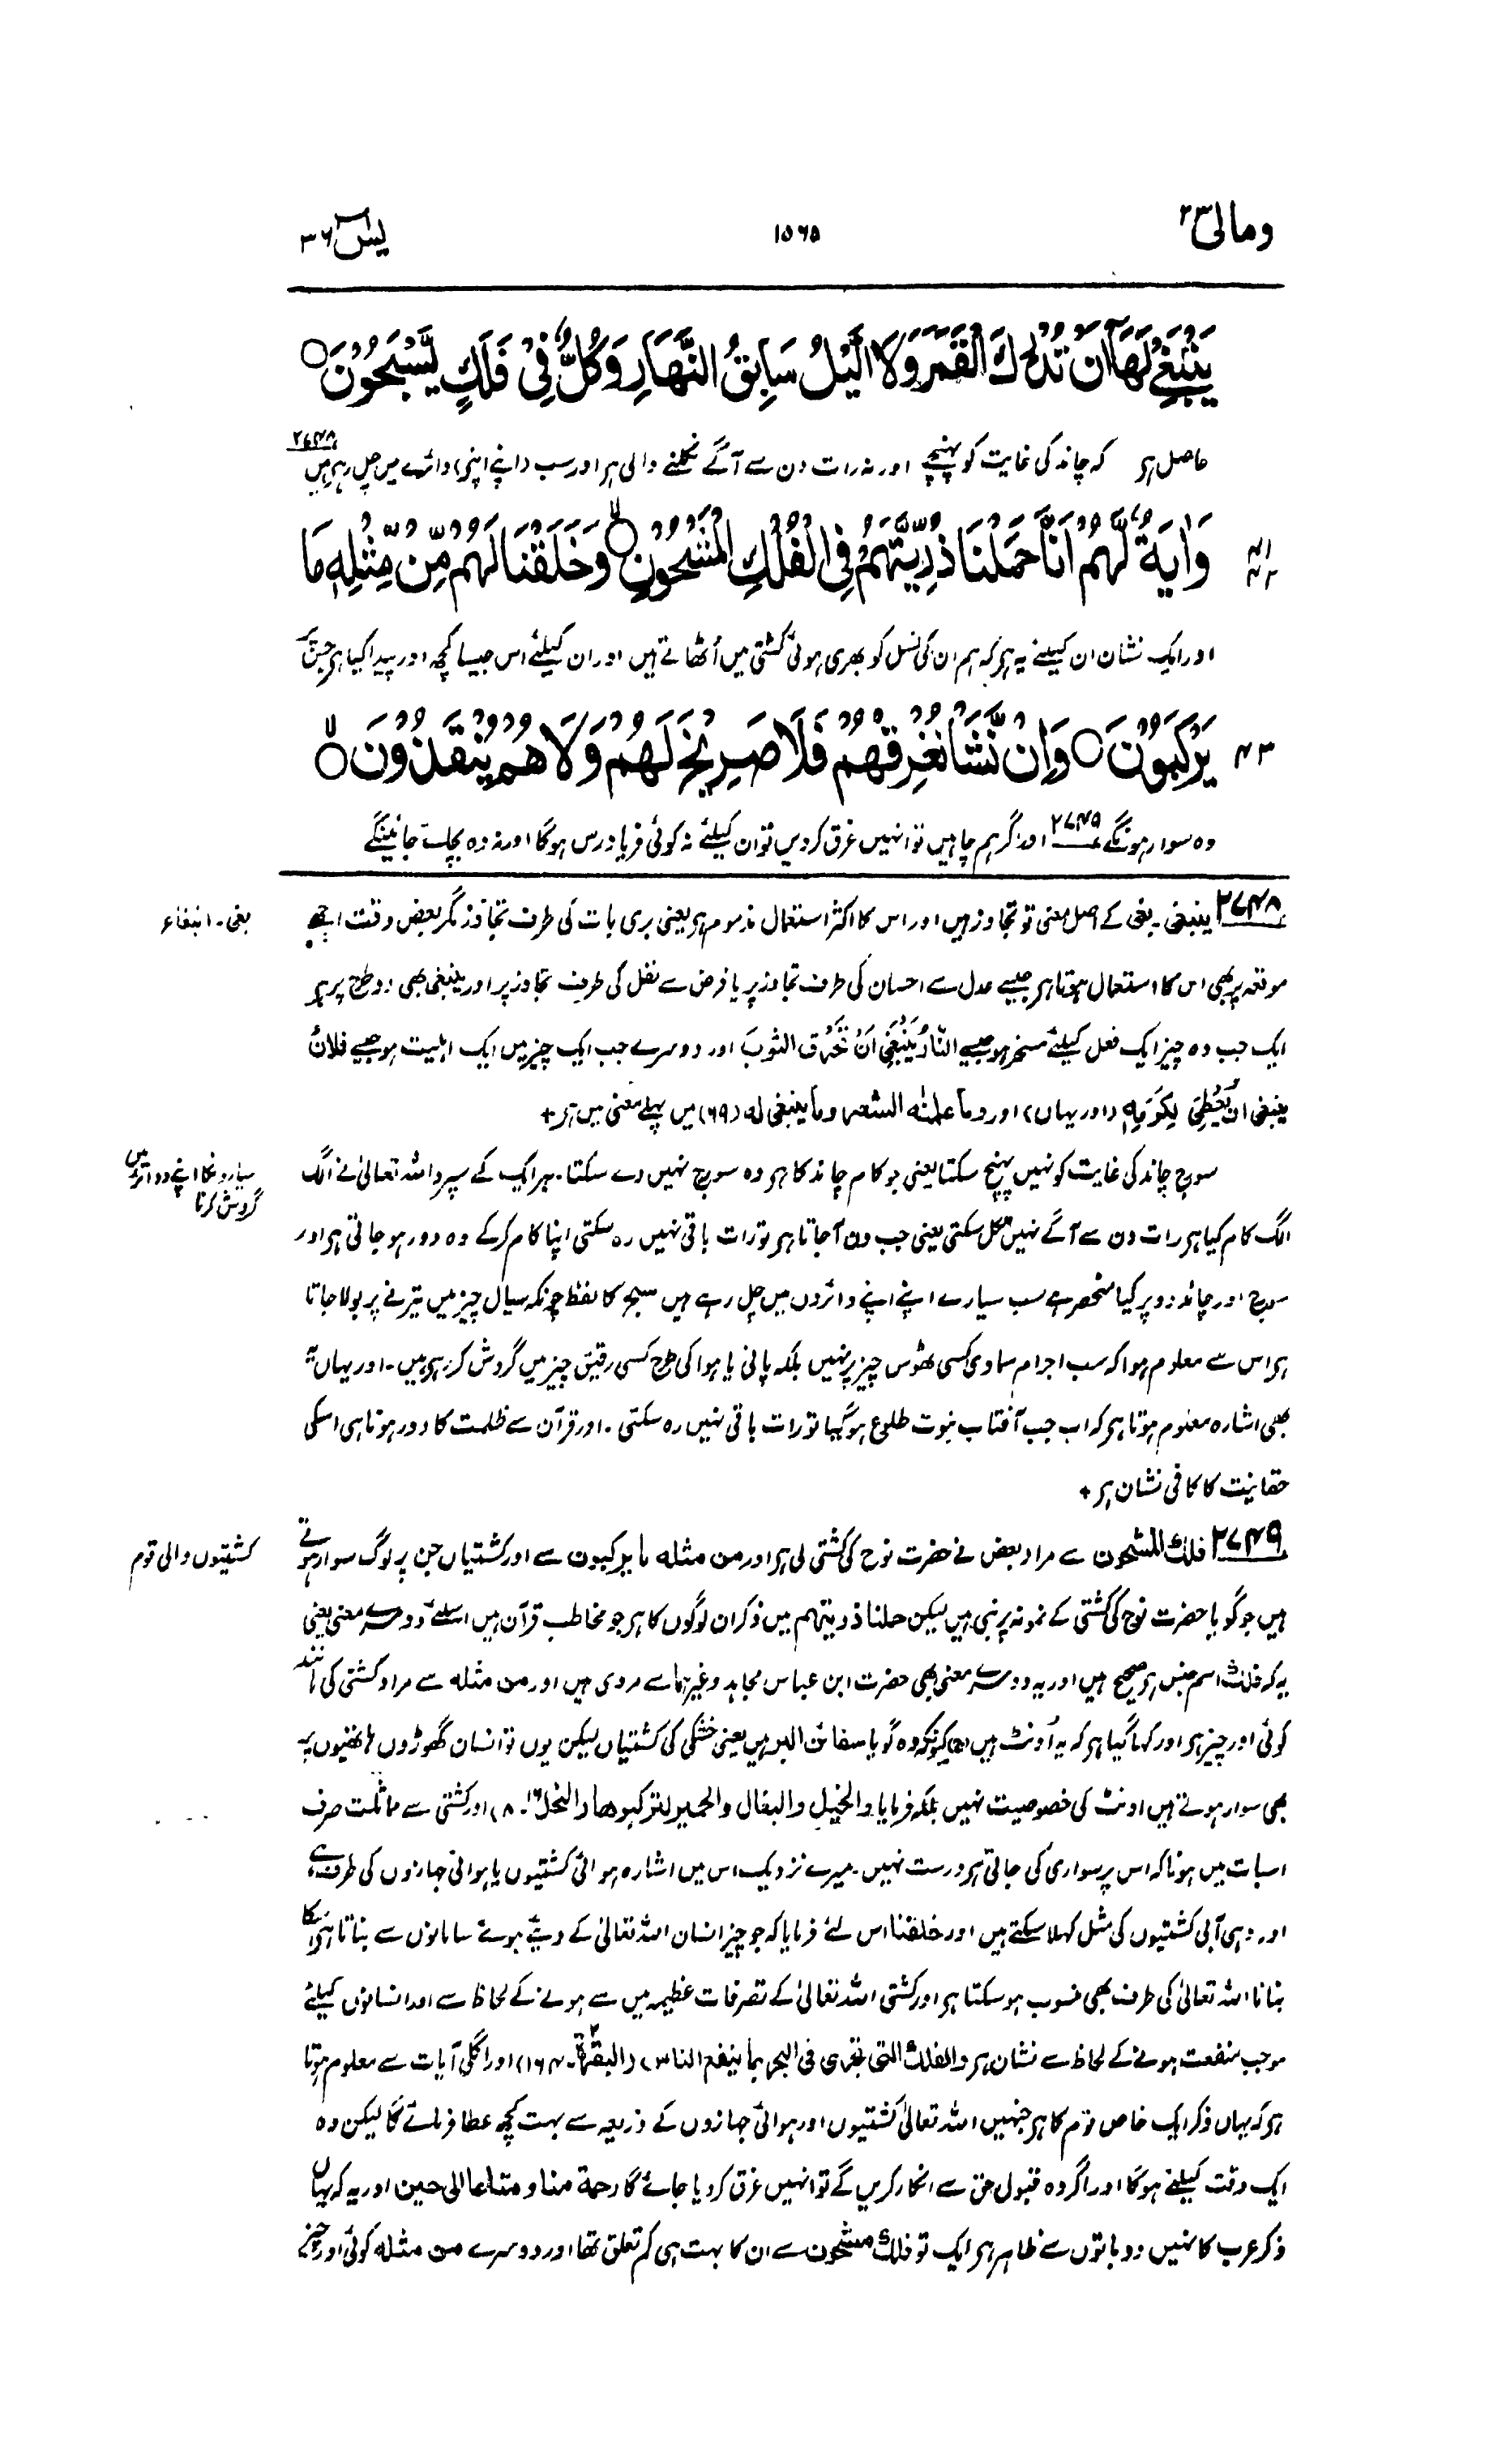 ومالی ۲۳
۱۵۶۵
یٰسٓ ۳۶
يَنْۢبَغِيْ لَهَاۤ اَنْ تُدْرِكَ الْقَمَرَ وَلَا الَّيْلُ سَابِقُ النَّهَارِ وَكُلٌّ فِيْ فَلَكٍ يَّسْبَحُوْنَ ○
حاصل ہر کہ چاند کی غایت کو پہنچے اور نہ رات دن سے آگے نکلنے والی ہر اور سب (اپنے اپنے) دائرے میں چل رہے ہیں ۲۷۴۸
۴۱ ۴۲
وَاٰيَةٌ لَّهُمْ اَنَّا حَمَلْنَا ذُرِّيَّتَهُمْ فِي الْفُلْكِ الْمَشْحُوْنِ ○ وَخَلَقْنَا لَهُمْ مِّنْ مِّثْلِهٖ مَا
اور ایک نشان ان کیلئے یہ ہر کہ ہم ان کی نسل کو بھری ہوئی کشتی میں اُٹھاتے ہیں اور ان کیلئے اس جیسا کچھ اور پیدا کیا ہر جس پر
۴۳
يَرْكَبُوْنَ ○ وَاِنْ نَّشَاْ نُغْرِقْهُمْ فَلَا صَرِيْخَ لَهُمْ وَلَا هُمْ يُنْقَذُوْنَ ○
وہ سوار ہونگے ۲۷۴۹ اور اگر ہم چاہیں تو انہیں غرق کردیں تو ان کیلئے نہ کوئی فریاد رس ہوگا اور نہ وہ بچائے جائینگے
بغی۔ انبغاء
۲۷۴۸ ینبغی۔ بغی کے اصل معنی تو تجاوز ہیں اور اس کا اکثر استعمال مذموم ہر یعنی بری بات کی طرف تجاوز مگر بعض وقت اچھے
موقعہ پر بھی اس کا استعمال ہوتا ہر جیسے عدل سے احسان کی طرف تجاوز پر یا فرض سے نفل کی طرف تجاوز پر اور ینبغی بھی دو طرح پر ہر
ایک جب وہ چیز ایک فعل کیلئے مسخر ہو جیسے النَّارُ یَنْبَغِی اَنْ تُحْرِقَ الثوبَ اور دوسرے جب ایک چیز میں ایک اہلیت ہو جیسے فلانٌ
ینبغی ان یُعْطِیَ لِکَرَمِهٖ (اور یہاں) اور وما علمنٰه الشعر وما ینبغی له (۶۹) میں پہلے معنی میں ہر +
سیارونکا اپنے دوائر میں
گردش کرنا
سورج چاند کی غایت کو نہیں پہنچ سکتا یعنی جو کام چاند کا ہر وہ سورج نہیں دے سکتا۔ ہر ایک کے سپرد اللہ تعالیٰ نے الگ
الگ کام کیا ہر رات دن سے آگے نہیں نکل سکتی یعنی جب دن آجاتا ہر تو رات باقی نہیں رہ سکتی اپنا کام کرکے وہ دور ہو جاتی ہر اور
سورج اور چاند دو پر کیا منحصر ہے سب سیارے اپنے اپنے دائروں میں چل رہے ہیں سبح کا لفظ چونکہ سیال چیز میں تیرنے پر بولا جاتا
ہر اس سے معلوم ہوا کہ سب اجرام سماوی کسی ٹھوس چیز پر نہیں بلکہ پانی یا ہوا کی طرح کسی رقیق چیز میں گردش کر رہے ہیں۔ اور یہاں یہ
بھی اشارہ معلوم ہوتا ہر کہ اب جب آفتاب نبوت طلوع ہوگیا تو رات باقی نہیں رہ سکتی۔ اور قرآن سے ظلمت کا دور ہونا ہی اسکی
حقانیت کا کافی نشان ہر +
کشتیوں والی قوم
۲۷۴۹ فلك المشحون سے مراد بعض نے حضرت نوح کی کشتی لی ہر اور من مثله ما یرکبون سے اور کشتیاں جن پر لوگ سوار ہوتے
ہیں جو گویا حضرت نوح کی کشتی کے نمونہ پر بنی ہیں لیکن حملنا ذریتهم میں ذکر ان لوگوں کا ہر جو مخاطب قرآن ہیں اسلئے دوسرے معنی یعنی
یہ کہ فلك اسم جنس ہر صحیح ہیں اور یہ دوسرے معنی بھی حضرت ابن عباس مجاہد وغیرہما سے مروی ہیں اور من مثله سے مراد کشتی کی مانند
کوئی اور چیز ہر اور کہا گیا ہر کہ یہ اونٹ ہیں کیونکہ وہ گویا سفائن البر ہیں یعنی خشکی کی کشتیاں لیکن یوں تو انسان گھوڑوں ہاتھیوں پر
بھی سوار ہوتے ہیں اونٹ کی خصوصیت نہیں بلکہ فرمایا والخیل والبغال والحمیر لترکبوها (النحل ۱۶۔ ۸) اور کشتی سے مماثلت صرف
اسبات میں ہونا کہ اس پر سواری کی جاتی ہر درست نہیں۔ میرے نزدیک اس میں اشارہ ہوائی کشتیوں یا ہوائی جہازوں کی طرف ہے
اور وہی آبی کشتیوں کی مثل کہلا سکتے ہیں اور خلقنا اس لئے فرمایا کہ جو چیز انسان اللہ تعالیٰ کے دیئے ہوئے سامانوں سے بناتا ہر اسکا
بنانا اللہ تعالیٰ کی طرف بھی منسوب ہوسکتا ہر اور کشتی اللہ تعالیٰ کے تصرفات عظیمہ میں سے ہونے کے لحاظ سے اور انسانوں کیلئے
موجب منفعت ہونے کے لحاظ سے نشان ہر والفلك التی تجری فی البحر بما ینفع الناس (البقرۃ ۲۔ ۱۶۴) اور اگلی آیات سے معلوم ہوتا
ہر کہ یہاں ذکر ایک خاص قوم کا ہر جنہیں اللہ تعالیٰ کشتیوں اور ہوائی جہازوں کے ذریعہ سے بہت کچھ عطا فرمائے گا لیکن وہ
ایک وقت کیلئے ہوگا اور اگر وہ قبول حق سے انکار کریں گے تو انہیں غرق کر دیا جائے گا رحمة منا ومتاعا الی حین اور یہ کہ یہاں
ذکر عرب کا نہیں دو باتوں سے ظاہر ہر ایک تو فلك مشحون سے ان کا بہت ہی کم تعلق تھا اور دوسرے من مثله کوئی اور چیز